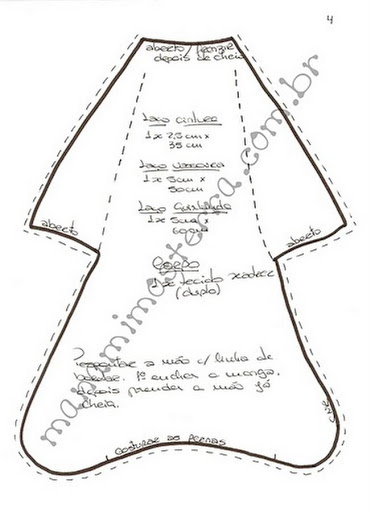 4
aberto / franzir
depois de cheio
Laço cintura
1x 2,5 cm x
35 cm
Laço vassoura
1x 5cm x
50cm
Laço
1x 5cm x
60cm
aberto
aberto
Corpo
1x tecido xadrez
(duplo)
a mão c/ linha de
bordar. 1º encher a manga,
depois prender a mão já
cheia.
costurar as pernas
manamimosterca.com.br